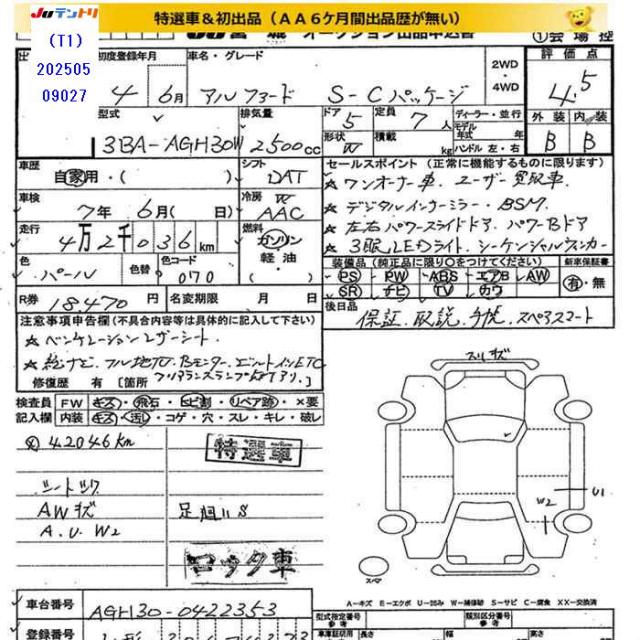 JUテントリ 特選車＆初出品（ＡＡ６ケ月間出品歴が無い）
(T1)
202505
09027
JU宮城 オークション出品申込書 ①会場控
初度登録年月 車名・グレード 2WD・4WD 評価点
4年 6月 アルファード S-Cパッケージ 4.5
型式 排気量 ドア 定員 ディーラー・並行 外装 内装
3BA-AGH30W 2500cc 5 7人 モデル年式 年 B B
形状 W 積載 kg ハンドル 左・右
車歴 シフト セールスポイント（正常に機能するものに限ります）
自家用・（ ） DAT ☆ワンオーナー車．ユーザー買取車．
車検 冷房 W
7年 6月（ 日） AAC ☆デジタルインナーミラー・BSM．
走行 燃料 ☆左右パワースライドドア．パワーBドア
4万2千036km ガソリン・軽油・（ ） ☆3眼LEDライト シーケンシャルウィンカー
色 色替 色コード 装備品（純正品に限り○をつけてください） 新車保証書
パール 070 PS PW ABS エアB AW 有・無
SR ナビ TV カワ
R券 18.470円 名変期限 月 日 後日品 保証．取説．手帳．スペアスマート
注意事項申告欄（不具合内容等は具体的に記入して下さい）
☆ベンチレーションレザーシート
☆純ナビ フル地TV．Bモニター．ビルトインETC
修復歴 有 [箇所
検査員 FW キズ・飛石・ヒビ割・リペア跡・×要
記入欄 内装 キズ・汚し・コゲ・穴・スレ・キレ・破レ
42046km 特選車
シートスレ
AWキズ 足廻りS
A．U．W2
ロック車
スリキズ
W2 U1
スペア
A－キズ E－エクボ U－凹み W－補修跡 S－サビ C－腐食 XX－交換済
車台番号 AGH30-0422353
型式指定番号 参考 類別区分番号 参考
登録番号